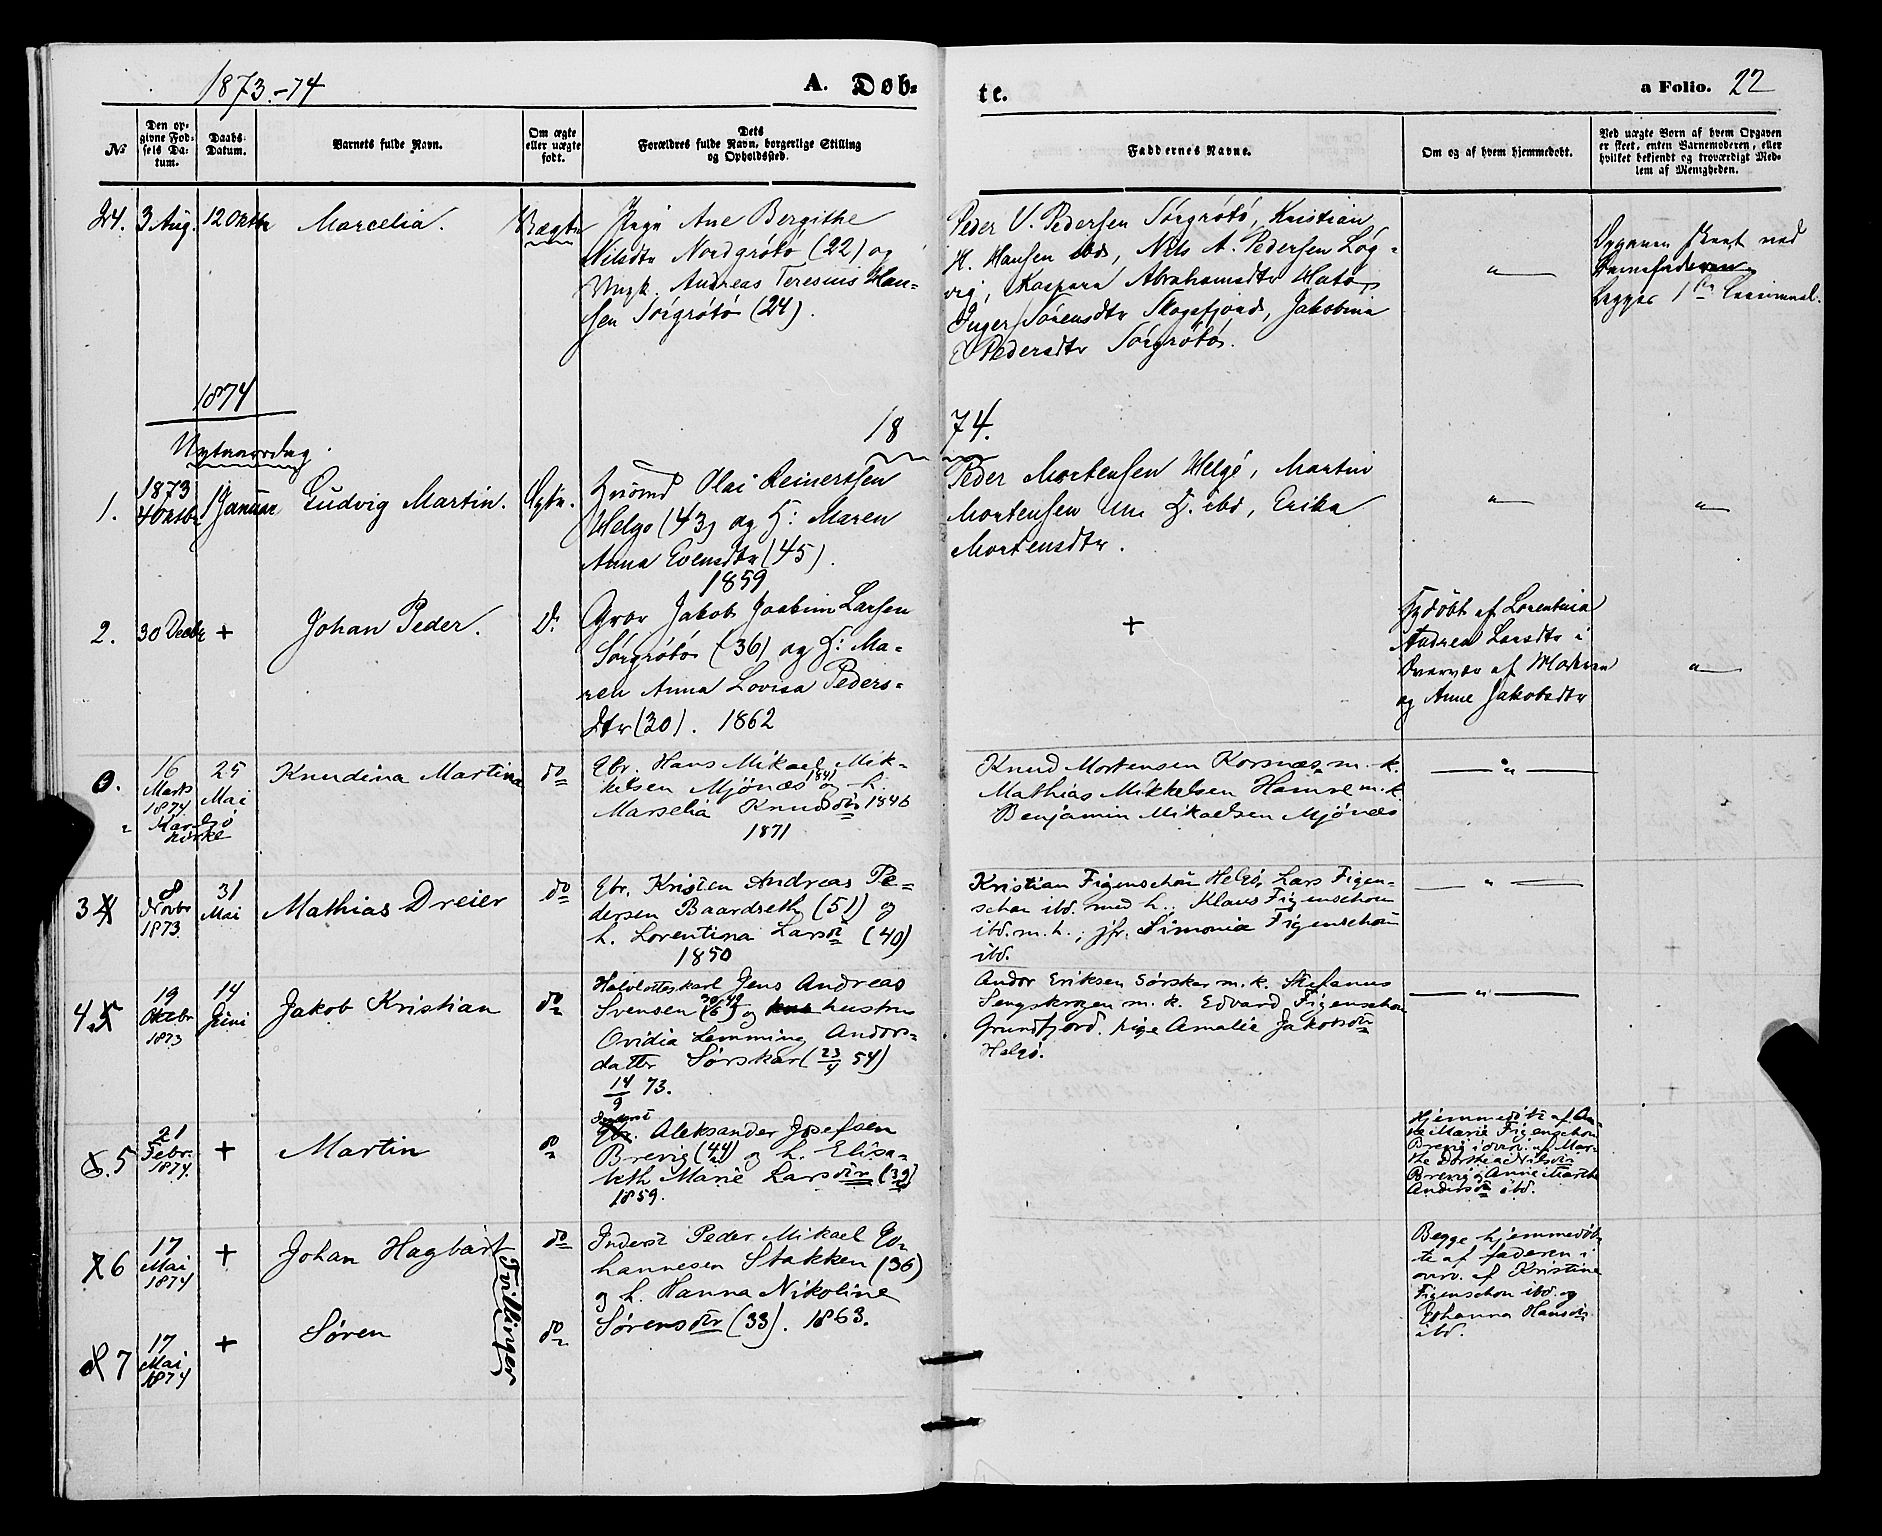 1873.-74
A. Døb-
te.
a Folio. 22
No
Den op-
givne Fød-
sels Da-
tum.
Daabs-
Datum.
Barnets fulde Navn.
Om ægte
eller uægte
født.
Dets
Forældres fulde Navn, borgerlige Stilling
og Opholdssted.
Faddernes Navne.
Om og af hvem hjemmedøbt.
Ved uægte Børn af hvem Opgaven
er skeet, enten Barnemoderen, eller
hvilket bekjendt og troværdigt Med-
lem af Menigheden.
24. 3 Aug. 12 Oktbr Marcelia. Uægte
Pige Ane Bergithe
Nilsdtr Nordgrøtø (22) og
Ungk. Andreas Teresius Han-
sen Sørgrøtø (24).
Peder U. Pedersen Sørgrøtø, Kristian
H. Hansen ibd, Nels A. Pedersen Løg-
vig, Kaspara Abrahamsdtr
Inger Sørensdtr Skogsfjord, Jakobina
Pedersdtr Sørgrøtø.
"
Opgaven skeet ved
Barnefaderen
Begges 1ste Leiermaal.
1874
Nytaarsdag.
18 74.
1. 1873
4 Oktbr 1 Januar Ludvig Martin. Ægte.
Olai Reinertsen
Helgø (43) og H: Maren
Anna Evensdtr (45).
1859
Peder Mortensen Helgø, Martin
Mortensen ibd, Erika
Mortensdtr.
"
"
2. 30 Decbr + Johan Peder. D:
Gbr Jakob Joakim Larsen
Sørgrøtø (36) og H: Ma-
ren Anna Lovisa Peders-
dtr (30). 1862
+
Hjdøbt af Lorentina
Andrea Larsdtr i
Overvær af
og Anne Jakobsdtr
"
0. 16
Marts
1874
Karlsø
kirke
25
Mai
Knudina Martina do
Gbr. Hans Mikael Mik-
kelsen Mjønæs 1841 og h.
Marselia Knudsdtr 1846
1871
Knud Mortensen Korsnæs m. k.
Mathias Mikkelsen Hamre m. k.
Benjamin Mikaelsen Mjønæs
"
3 4 8
Novbr
1873
31
Mai
Mathias Dreier do
Gbr. Kristen Andreas Pe-
dersen Baardseth (51) og
h. Lorentina Larsdtr (40)
1850
Kristian Figenschou Helgø, Lars Figen-
schou ibd. med h., Klaus Figenschou
ibd. m. h., jfr. Simonia Figenschou
ibd.
"
4. 5 19
Oktbr
1873
14
Juni
Jakob Kristian do
Halvlotteskarl Jens Andreas
Svensen (30/6 49) og hustru
Ovidia Lemming Andors-
datter Sørskar (23/4 54)
14/9 73.
Andor Eriksen Sørskar m. k. Stefanus
Sengskrogen m. k. Edvard Figenschou
Grundfjord. pige Amalie Jakobsdtr
Helgø.
"
6. 5 21
Febr.
1874.
+ Martin do
Inderst
Gbr. Aleksander Josefsen
Brevig (44) og h. Elisa-
beth Marie Larsdtr (39)
1859.
Hjemmedøbt af An-
ne Marie Figenschou
Brevig i overv. af Mar-
the Dorthea Nilsdtr
Brevig og Anne Marthe
Andersdtr ibd.
7 6 17
Mai
1874
+ Johan Hagbart do
Tvillinger
Inderst Peder Mikael Jo-
hannesen Stakken (36)
og h. Hanna Nikoline
Sørensdtr (33). 1863.
Begge hjemmedøb-
te af faderen i
overv. af Kristine
Figenschou ibd. og
Johanna Hansdtr
ibd.
8 7 17
Mai
1874
+ Søren do